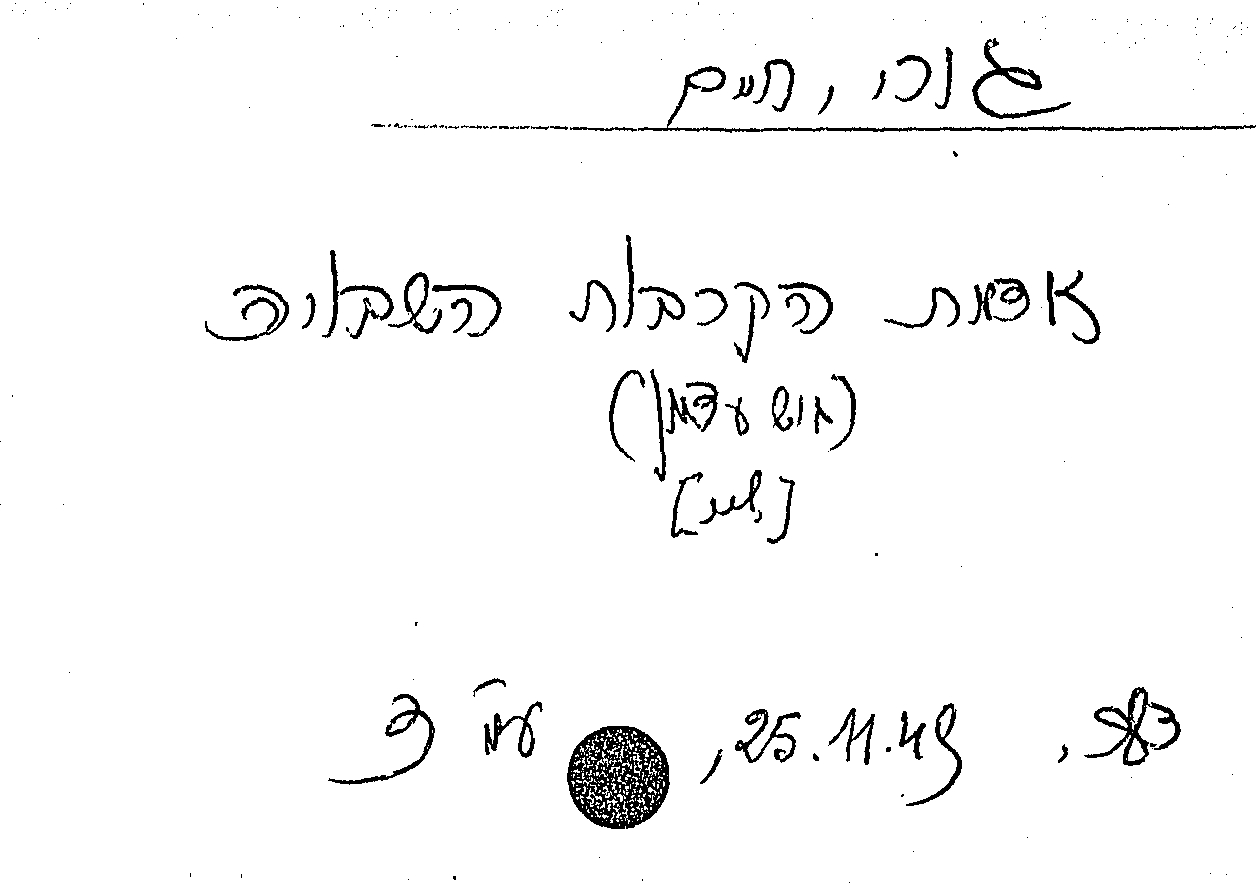 גורי, חיים
אדמת הקרבות השבויה
(מוש עדמון)
[שיר]
דבר, 25.11.49, עמ' 3